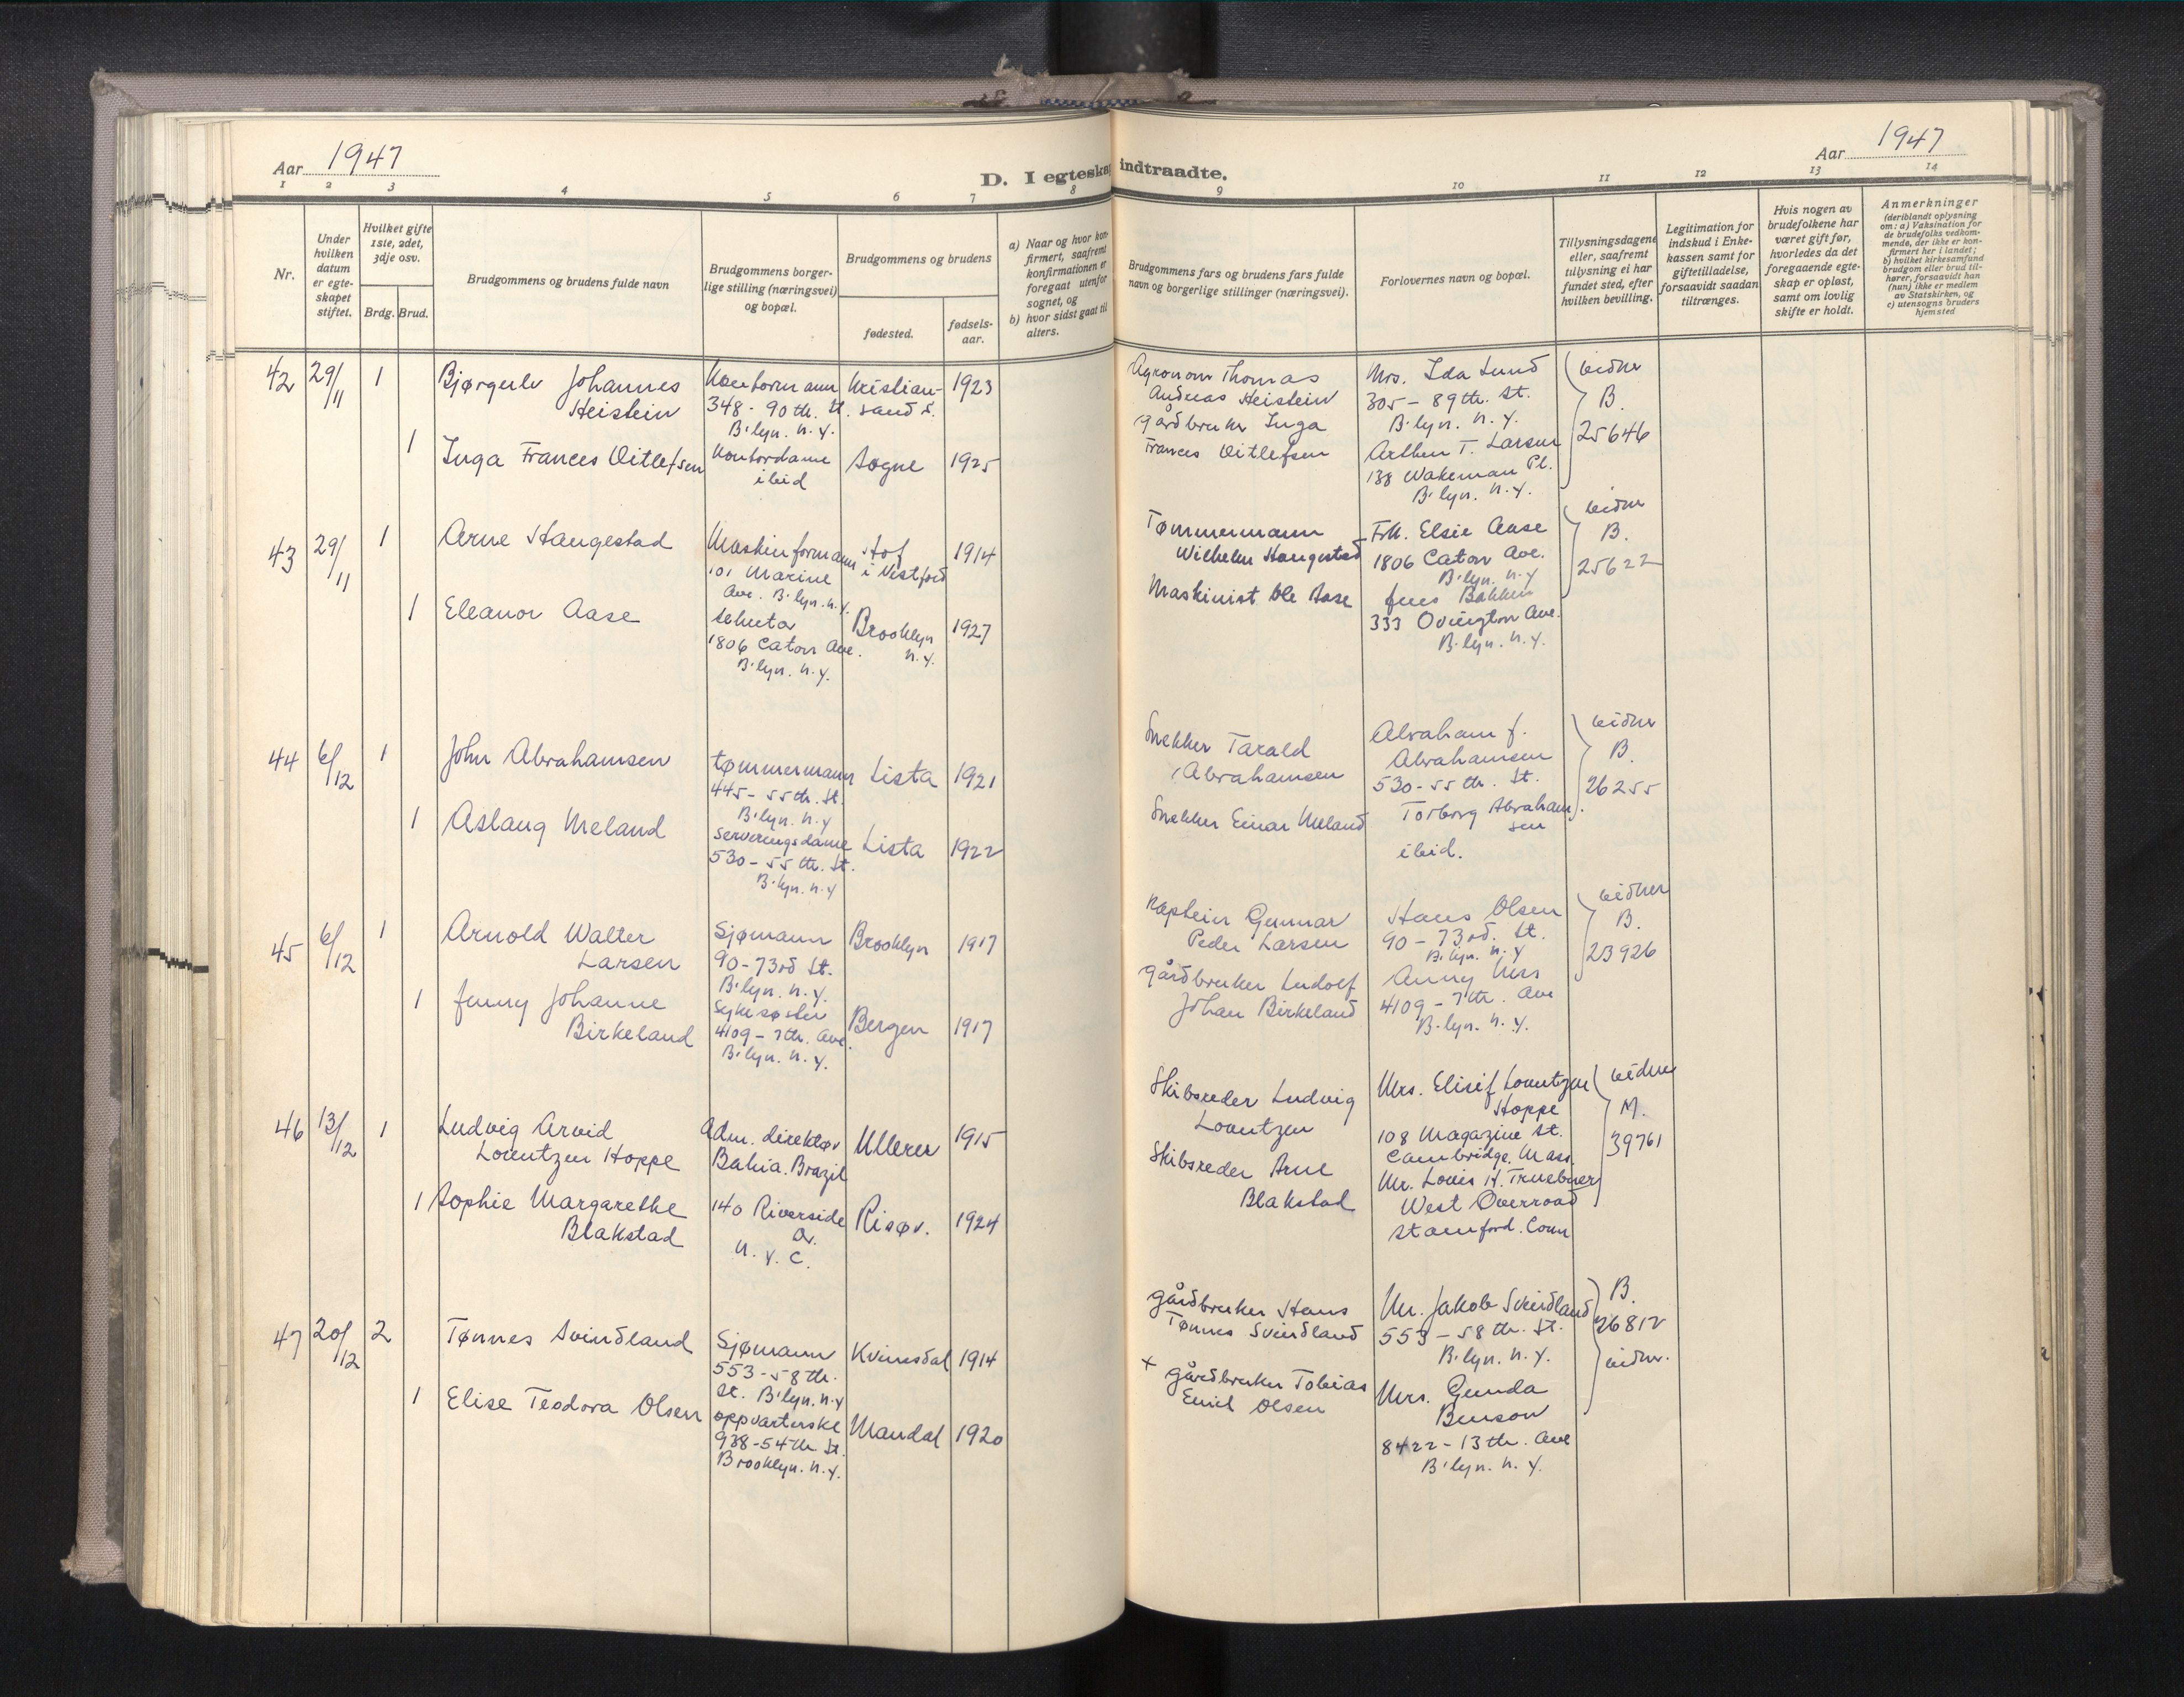 Aar 1947
D. I egteska
1 2 3 4 5 6 7 8
Nr.
Under hvilken datum er egteskapet stiftet.
Hvilket gifte 1ste, 2det, 3dje osv.
Brdg. Brud.
Brudgommens og brudens fulde navn
Brudgommens borger-
lige stilling (næringsvei)
og bopæl.
Brudgommens og brudens
fødested.
fødsels-
aar.
a) Naar og hvor kon-
firmert, saafremt
konfirmationen er
foregaat utenfor
sognet, og
b) hvor sidst gaat til
alters.
42 29/11 1
Bjørgulv Johannes
Heistein
Kontormann
348 - 90th. St.
B'lyn. N.Y.
Kristian-
sand S.
1923
1
Inga Frances Ditlefsen
Kontordame
ibid
Søgne
1925
43 29/11 1
Arne Haugestad
Maskinformann
101 Marine
Ave. B'lyn. N.Y.
Hof
i Vestfold
1914
1
Eleanor Aase
1806 Caton Ave.
B'lyn. N.Y.
Brooklyn
N.Y.
1927
44 6/12 1
John Abrahamsen
tømmermann
445 - 55th. St.
B'lyn. N.Y
Lista
1921
1
Aslaug Meland
Serveringsdame
530 - 55th. St.
B'lyn. N.Y
Lista
1922
45 6/12 1
Arnold Walter
Larsen
Sjømann
90 - 73rd St.
B'lyn. N.Y.
Brooklyn
1917
1
Jenny Johanne
Birkeland
Sykesøster
4109 - 7th. Ave.
B'lyn. N.Y.
Bergen
1917
46 13/12 1
Ludvig Arvid
Lorentzen Hoppe
Adm. direktør
Bahia. Brazil
Ulleren
1915
1
Sophie Margarethe
Blakstad
140 Riverside
Dr.
N.Y.C.
Risør.
1924
47 20/12 2
Tønnes Svindland
Sjømann
553 - 58th.
St. B'lyn. N.Y
Kvinesdal
1914
1
Elise Teodora Olsen
oppvarterske
938 - 54th St.
Brooklyn. N.Y.
Mandal
1920
Aar 1947
indtraadte.
9 10 11 12 13 14
Brudgommens fars og brudens fars fulde
navn og borgerlige stillinger (næringsvei).
Forlovernes navn og bopæl.
Tillysningsdagene
eller, saafremt
tillysning ei har
fundet sted, efter
hvilken bevilling.
Legitimation for
indskud i Enke-
kassen samt for
giftetilladelse,
forsaavidt saadan
tiltrænges.
Hvis nogen av
brudefolkene har
været gift før,
hvorledes da det
foregaaende egte-
skap er opløst,
samt om lovlig
skifte er holdt.
Anmerkninger
(deriblandt oplysning
om: a) Vaksination for
de brudefolks vedkom-
mende, der ikke er kon-
firmert her i landet;
b) hvilket kirkesamfund
brudgom eller brud til-
hører, forsaavidt han
(hun) ikke er medlem
av Statskirken, og
c) utensogns bruders
hjemsted
Agronom Thomas
Andreas Heistein
gårdbruker Inga
Frances Ditlefsen
Mrs. Ida Lund
305 - 89th. St.
B'lyn. N.Y.
Arthur T. Larsen
138 Wakeman Pl.
B'lyn. N.Y.
vidner
B.
25646
Tømmermann
Wilhelm Haugestad
Maskinist Ole Aase
Frk. Elsie Aase
1806 Caton Ave.
B'lyn. N.Y
Jens Bakken
333 Ovington Ave.
B'lyn. N.Y.
vidner
B.
25622
Snekker Tarald
Abrahamsen
Snekker Einar Meland
Abraham J.
Abrahamsen
530 - 55th. St.
Torborg Abraham
sen
ibid.
vidner
B.
26255
Kaptein Gunnar
Peder Larsen
gårdbruker Ludolf
Johan Birkeland
Hans Olsen
90 - 73rd. St.
B'lyn. N.Y
Anny Ness
4109 - 7th. Ave
B'lyn. N.Y.
vidner
B.
23926
Skibsreder Ludvig
Lorentzen
Skibsreder Arne
Blakstad
Mrs. Elisif Lorentzen
Hoppe
108 Magazine St.
Cambridge. Mass
Mr. Louis H. Truebner
West Overroad
Stamford. Conn
vidner
M.
39761
gårdbruker Hans
Tønnes Svindland
+ gårdbruker Tobias
Emil Olsen
Mr. Jakob Svindland
553 - 58th. St.
B'lyn. N.Y.
Mrs. Gunda
Benson
8422 - 13th. Ave
B'lyn. N.Y.
B.
26812
vidner.